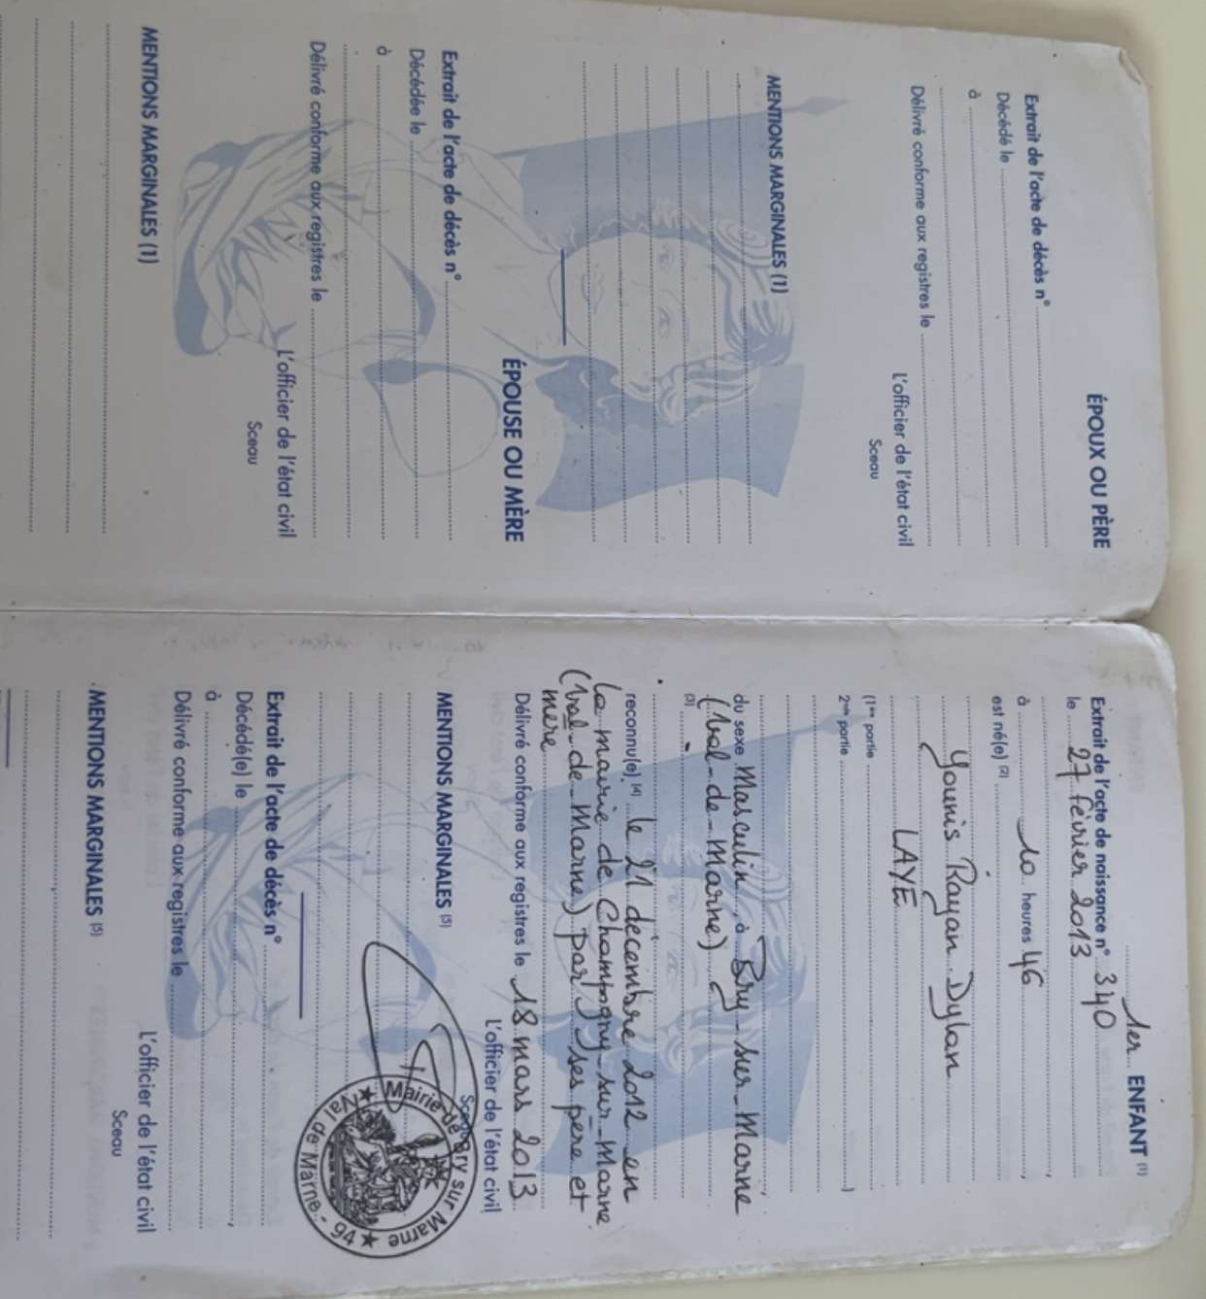 ÉPOUX OU PÈRE
Extrait de l'acte de décès n°
Décédé le
à
Délivré conforme aux registres le
L'officier de l'état civil
Sceau
MENTIONS MARGINALES (1)
ÉPOUSE OU MÈRE
Extrait de l'acte de décès n°
Décédée le
à
Délivré conforme aux registres le
L'officier de l'état civil
Sceau
MENTIONS MARGINALES (1)
1er ENFANT (1)
Extrait de l'acte de naissance n° 340
le 27 février 2013
à 10 heures 46
est né(e) (2)
Younis Rayan Dylan
LAYE
(1re partie
2me partie )
du sexe Masculin, à Bry-sur-Marne
(Val-de-Marne)
(3) -
reconnu(e) (4) le 21 décembre 2012 en
la mairie de Champigny-sur-Marne
(Val-de-Marne) par ses père et
mère
Délivré conforme aux registres le 18 mars 2013
L'officier de l'état civil
Sceau
Mairie de Bry sur Marne ★ Val de Marne - 94 ★
MENTIONS MARGINALES (5)
Extrait de l'acte de décès n°
Décédé(e) le
à
Délivré conforme aux registres le
L'officier de l'état civil
Sceau
MENTIONS MARGINALES (5)